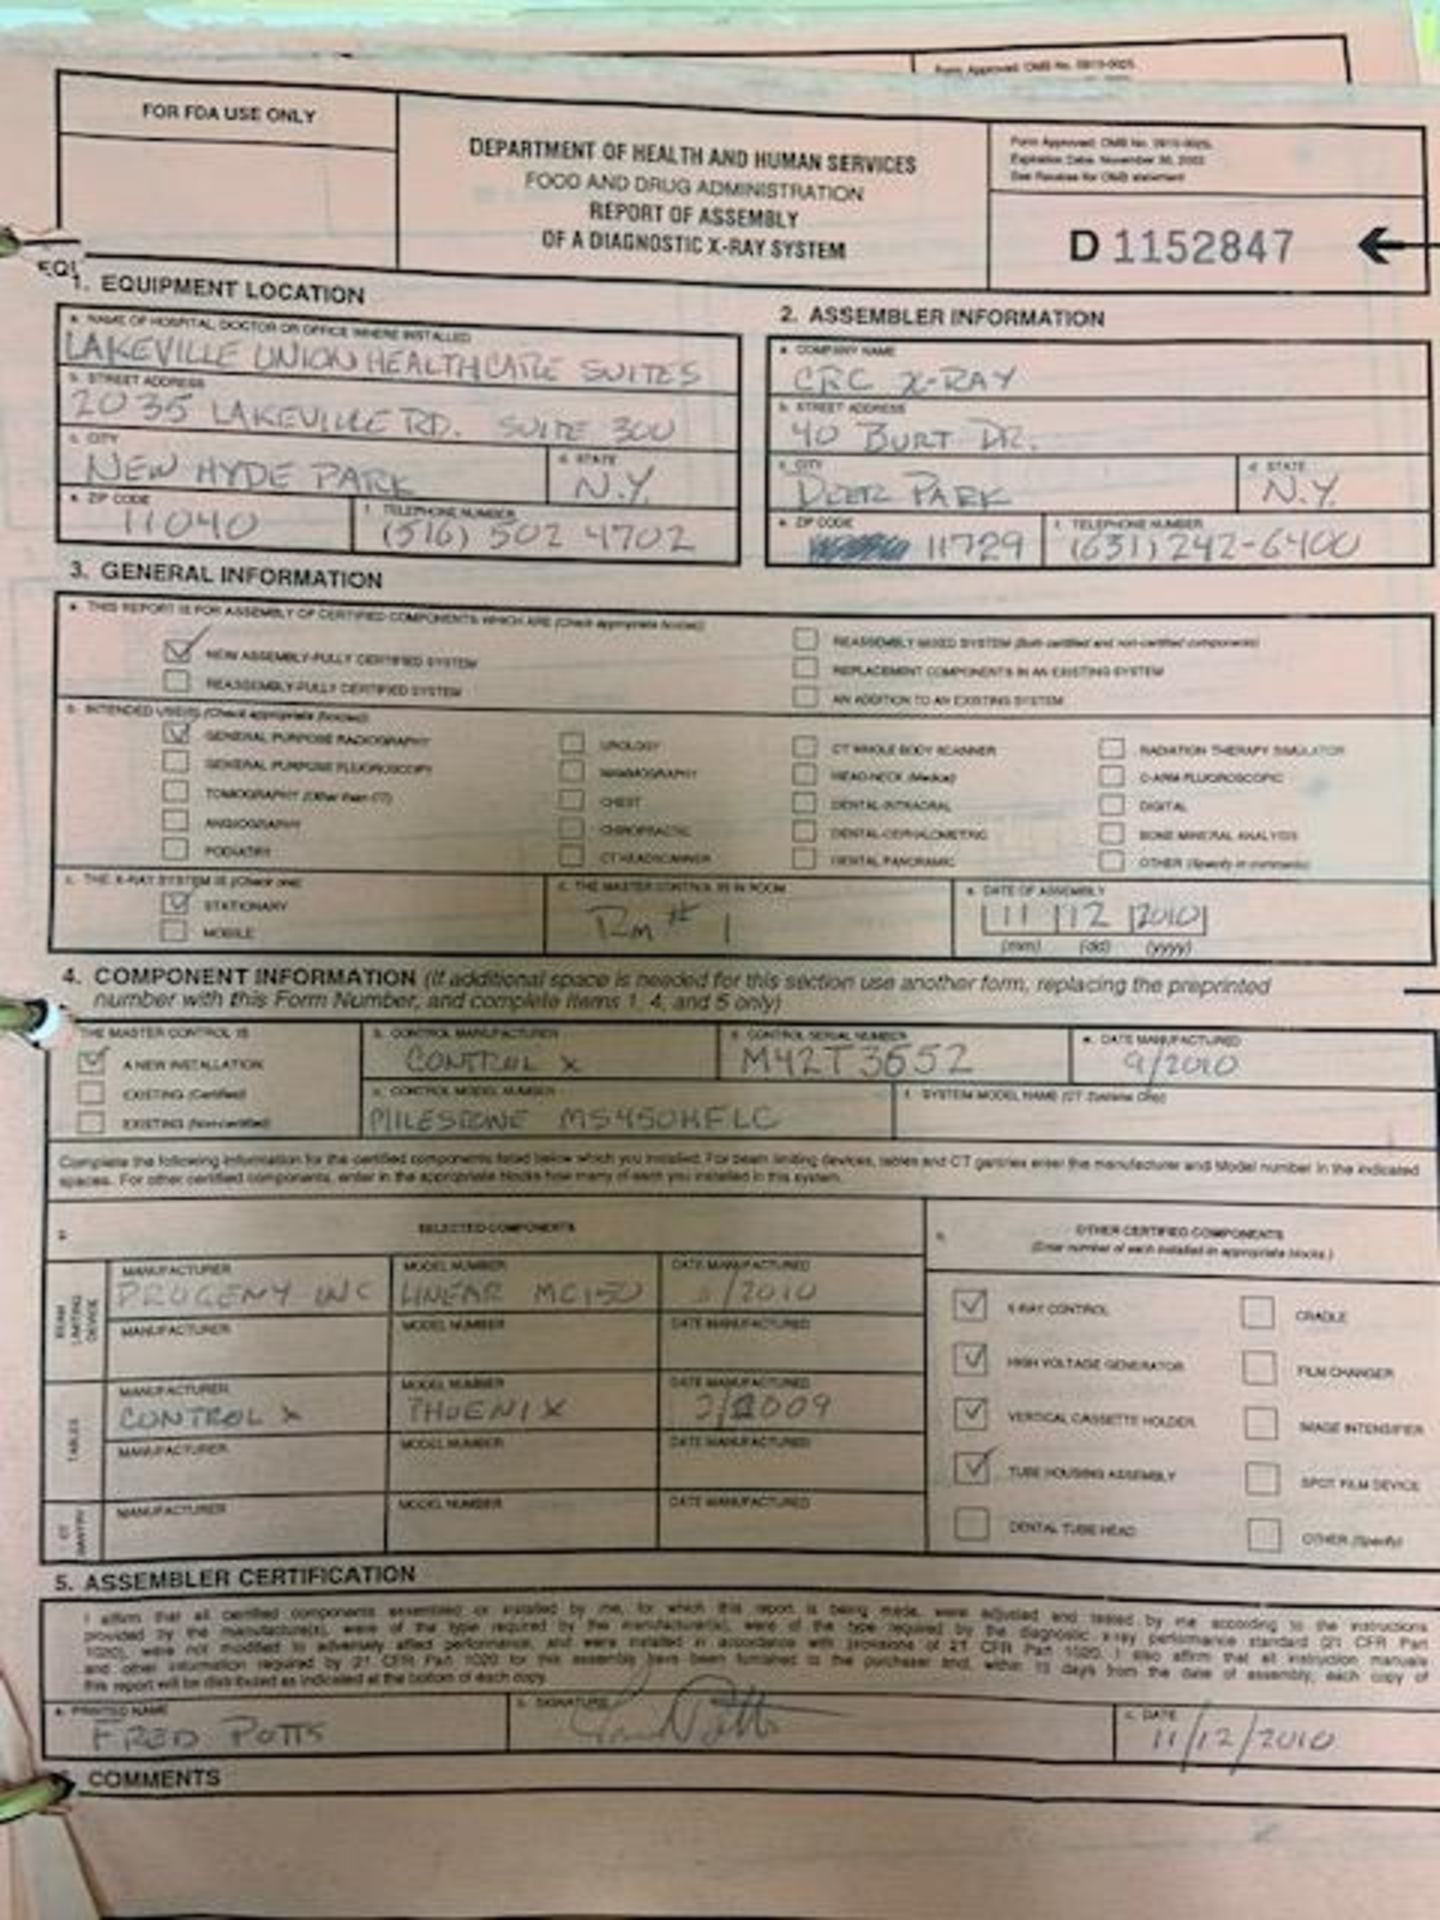 Form Approved: OMB No. 0910-0025.
FOR FDA USE ONLY
DEPARTMENT OF HEALTH AND HUMAN SERVICES
FOOD AND DRUG ADMINISTRATION
REPORT OF ASSEMBLY
OF A DIAGNOSTIC X-RAY SYSTEM
Form Approved: OMB No. 0910-0025.
Expiration Date: November 30, 2003
See Reverse for OMB statement
D 1152847
EQU
1. EQUIPMENT LOCATION
a. NAME OF HOSPITAL, DOCTOR OR OFFICE WHERE INSTALLED
LAKEVILLE UNION HEALTHCARE SUITES
b. STREET ADDRESS
2035 LAKEVILLE RD. SUITE 300
c. CITY
NEW HYDE PARK
d. STATE
N.Y.
e. ZIP CODE
11040
f. TELEPHONE NUMBER
(516) 502 4702
2. ASSEMBLER INFORMATION
a. COMPANY NAME
CRC X-RAY
b. STREET ADDRESS
40 BURT DR.
c. CITY
DEER PARK
d. STATE
N.Y.
e. ZIP CODE
11729
f. TELEPHONE NUMBER
(631) 242-6400
3. GENERAL INFORMATION
a. THIS REPORT IS FOR ASSEMBLY OF CERTIFIED COMPONENTS WHICH ARE (Check appropriate box(es))
NEW ASSEMBLY-FULLY CERTIFIED SYSTEM
REASSEMBLY-FULLY CERTIFIED SYSTEM
REASSEMBLY-MIXED SYSTEM (Both certified and non-certified components)
REPLACEMENT COMPONENTS IN AN EXISTING SYSTEM
AN ADDITION TO AN EXISTING SYSTEM
b. INTENDED USE(S) (Check appropriate box(es))
GENERAL PURPOSE RADIOGRAPHY
GENERAL PURPOSE FLUOROSCOPY
TOMOGRAPHY (Other than CT)
ANGIOGRAPHY
PODIATRY
UROLOGY
MAMMOGRAPHY
CHEST
CHIROPRACTIC
CT HEADSCANNER
CT WHOLE BODY SCANNER
HEAD-NECK (Medical)
DENTAL-INTRAORAL
DENTAL-CEPHALOMETRIC
DENTAL PANORAMIC
RADIATION THERAPY SIMULATOR
C-ARM FLUOROSCOPIC
DIGITAL
BONE MINERAL ANALYSIS
OTHER (Specify in comments)
c. THE X-RAY SYSTEM IS (Check one)
STATIONARY
MOBILE
d. THE MASTER CONTROL IS IN ROOM
Rm # 1
e. DATE OF ASSEMBLY
11 12 2010
(mm) (dd) (yyyy)
4. COMPONENT INFORMATION (If additional space is needed for this section use another form, replacing the preprinted
number with this Form Number, and complete Items 1, 4, and 5 only)
THE MASTER CONTROL IS
A NEW INSTALLATION
EXISTING (Certified)
EXISTING (Non-certified)
b. CONTROL MANUFACTURER
CONTROL X
c. CONTROL MODEL NUMBER
MILESTONE MS450HFLC
d. CONTROL SERIAL NUMBER
M42T3652
e. DATE MANUFACTURED
9/2010
f. SYSTEM MODEL NAME (CT Systems Only)
Complete the following information for the certified components listed below which you installed. For beam limiting devices, tables and CT gantries enter the manufacturer and Model number in the indicated
spaces. For other certified components, enter in the appropriate blocks how many of each you installed in this system.
SELECTED COMPONENTS
BEAM LIMITING DEVICE
MANUFACTURER
PROGENY INC
MODEL NUMBER
LINEAR MC150
DATE MANUFACTURED
/2010
MANUFACTURER
MODEL NUMBER
DATE MANUFACTURED
TABLES
MANUFACTURER
CONTROL X
MODEL NUMBER
PHOENIX
DATE MANUFACTURED
2/2009
MANUFACTURER
MODEL NUMBER
DATE MANUFACTURED
CT GANTRY
MANUFACTURER
MODEL NUMBER
DATE MANUFACTURED
OTHER CERTIFIED COMPONENTS
(Enter number of each installed in appropriate blocks.)
X-RAY CONTROL
HIGH VOLTAGE GENERATOR
VERTICAL CASSETTE HOLDER
TUBE HOUSING ASSEMBLY
DENTAL TUBE HEAD
CRADLE
FILM CHANGER
IMAGE INTENSIFIER
SPOT FILM DEVICE
OTHER (Specify)
5. ASSEMBLER CERTIFICATION
I affirm that all certified components assembled or installed by me, for which this report is being made, were adjusted and tested by me according to the instructions
provided by the manufacturer(s), were of the type required by the manufacturer(s), were of the type required by the diagnostic x-ray performance standard (21 CFR Part
1020), were not modified to adversely affect performance, and were installed in accordance with provisions of 21 CFR Part 1020. I also affirm that all instruction manuals
and other information required by 21 CFR Part 1020 for this assembly have been furnished to the purchaser and, within 15 days from the date of assembly, each copy of
this report will be distributed as indicated at the bottom of each copy.
a. PRINTED NAME
FRED POTTS
b. SIGNATURE
c. DATE
11/12/2010
COMMENTS